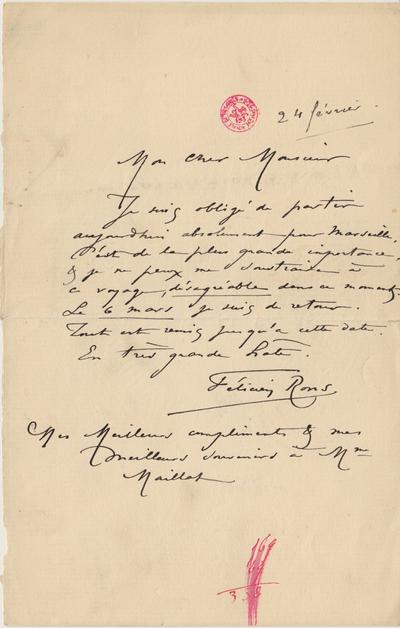 24 février.
Mon cher Monsieur
Je suis obligé de partir
aujourdhui absolument pour Marseille.
C'est de la plus grande importance,
& je ne peux me soustraire à
ce voyage, désagréable dans ce moment.
Le 6 mars je suis de retour.
Tout est remis jusqu'à cette date.
En très grande hâte.
Félicien Rops
Mes Meilleurs compliments & mes
meilleurs souvenirs à Mme
Maillat